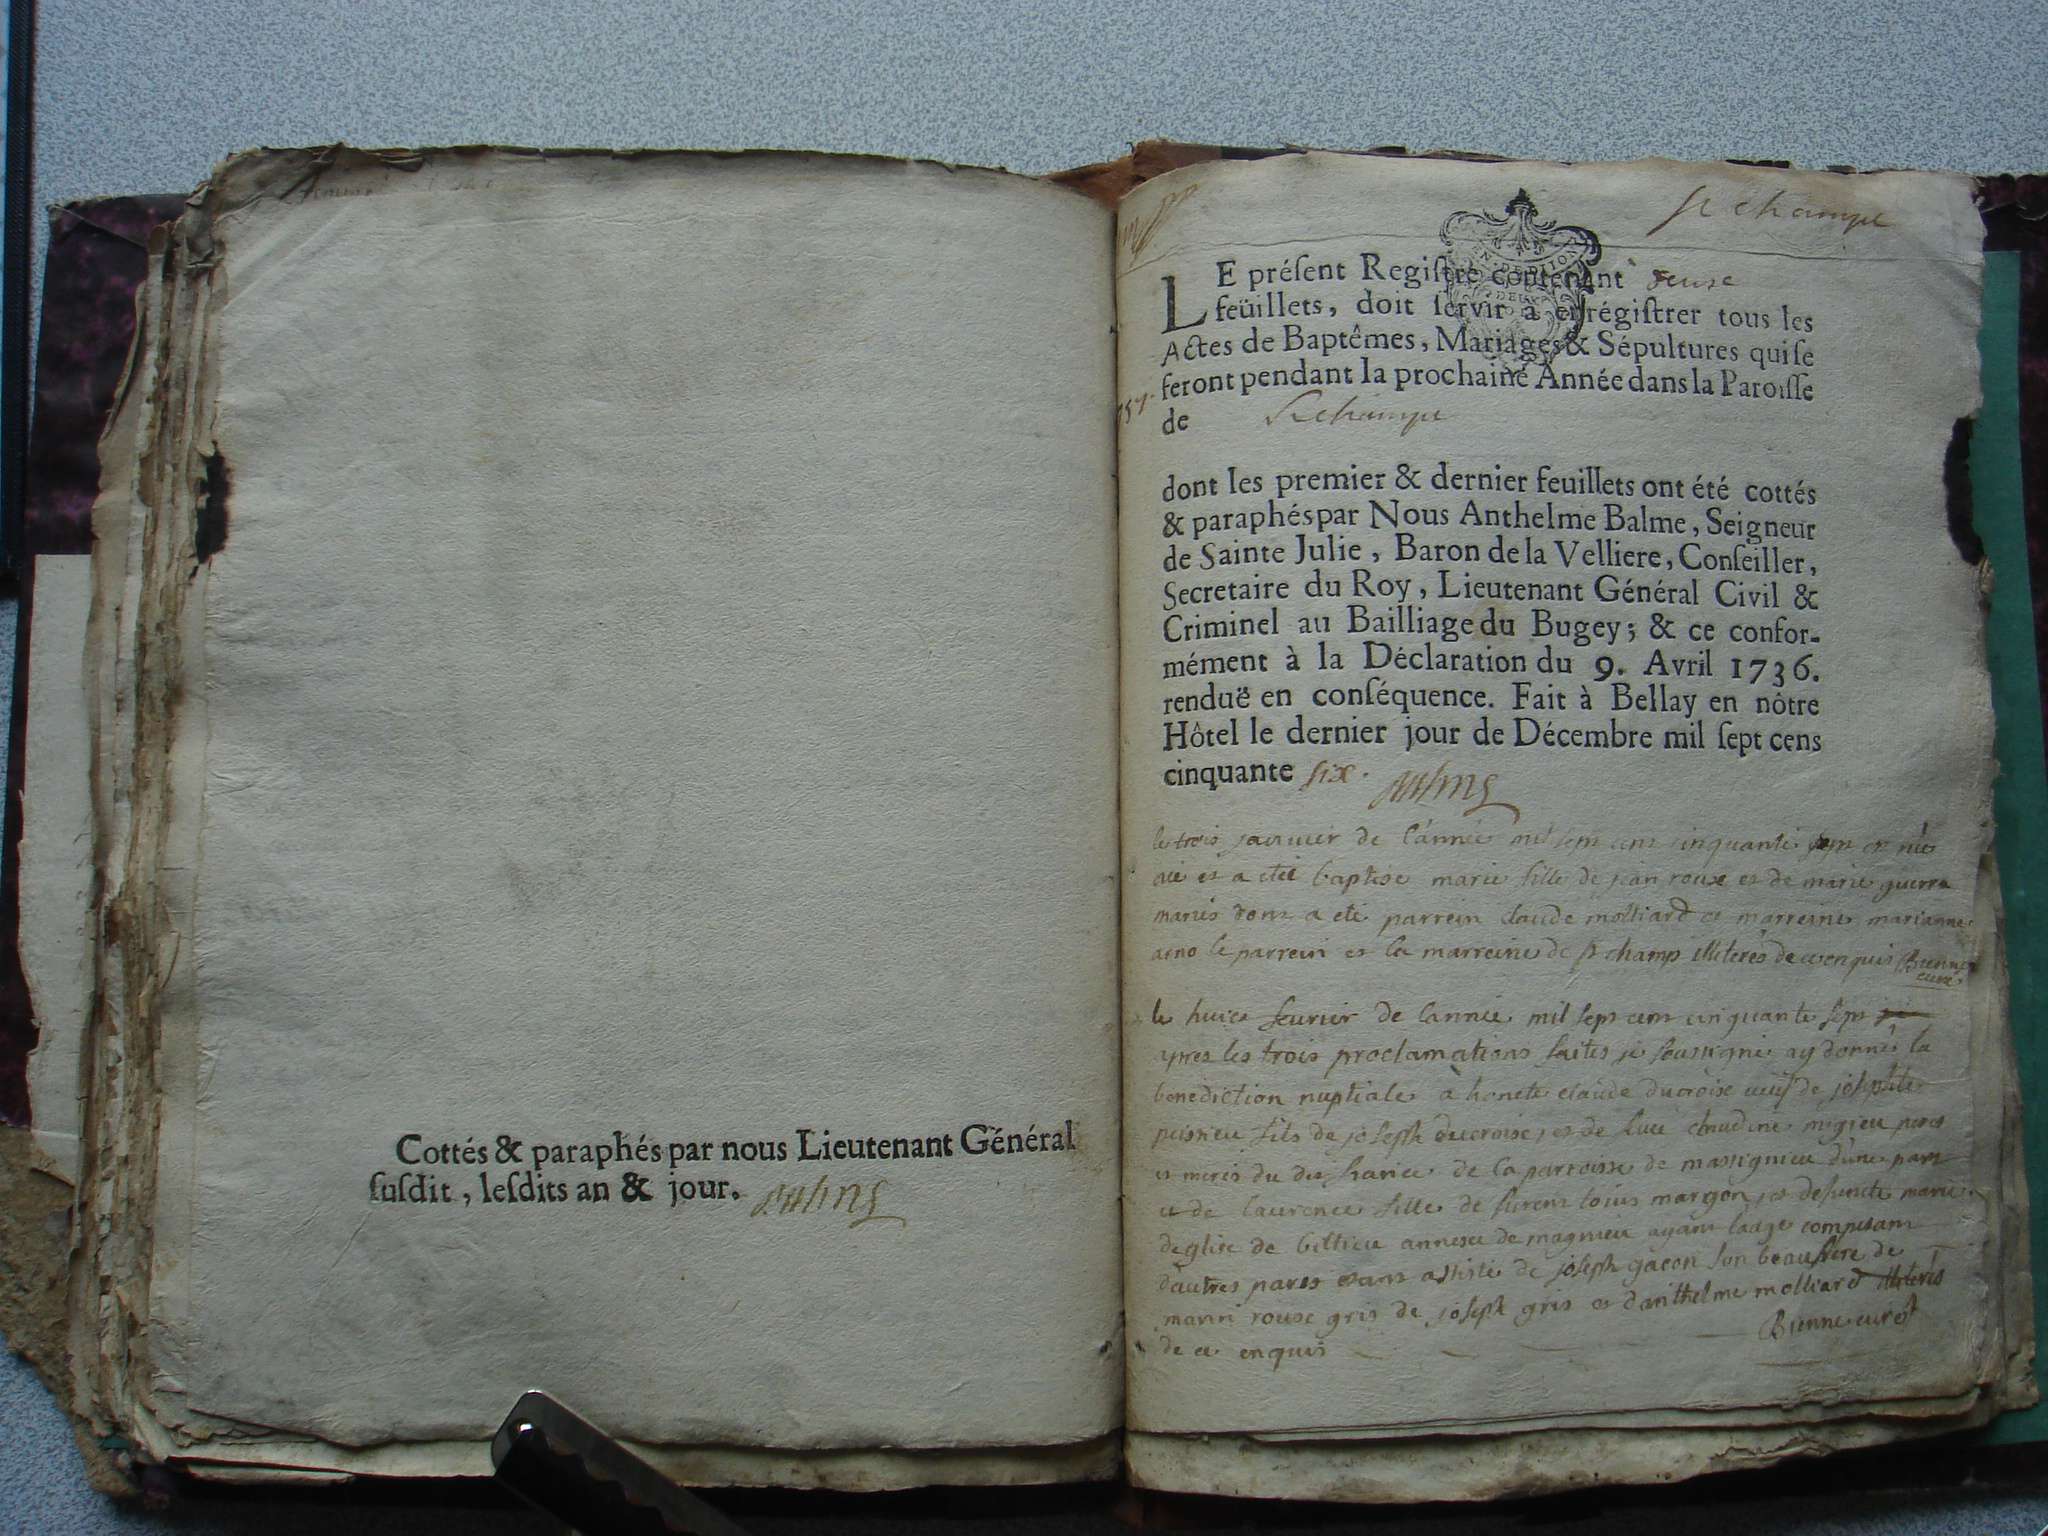 Cottés & paraphés par nous Lieutenant Général
ſuſdit, leſdits an & jour.
st champt
LE préſent Regiſtre contenant deuxe
feüillets, doit ſervir à enrégiſtrer tous les
Actes de Baptêmes, Mariages & Sépultures qui ſe
feront pendant la prochaine Année dans la Paroiſſe
de St champt
dont les premier & dernier feuillets ont été cottés
& paraphés par Nous Anthelme Balme, Seigneur
de Sainte Julie, Baron de la Velliere, Conſeiller,
Secretaire du Roy, Lieutenant Général Civil &
Criminel au Bailliage du Bugey; & ce confor-
mément à la Déclaration du 9. Avril 1736.
renduë en conſéquence. Fait à Bellay en nôtre
Hôtel le dernier jour de Décembre mil ſept cens
cinquante six.
le trois janvier de l'année mil sept cent cinquante sept est née
et a eté baptise marie fille de jean roux et de marie guerra
mariés dont a eté parrein claude molliard et marreine marianne
arno le parrein et la marreine de st champ illiterés de ce enquis Bienne
curé
le huict fevrier de l'année mil sept cent cinquante sept
apres les trois proclamations faites je soussigné ay donné la
benediction nuptiale à honete claude ducroise veuf de josephte
fils de joseph ducroise et de claudine migieu peres
et meres du dit de la parroisse de massignieu d'une part
et de laurence fille de margon et defuncte marie
deglise de billieu annexe de magnieu ayant l'aage competant
d'autres parts assisté de joseph gacon son beaufrere de
roux gris de joseph gris et d'anthelme molliard illiterés
de ce enquis Bienne curé